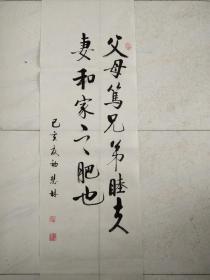 父母笃兄弟睦夫
妻和家之肥也
己亥反初慧林